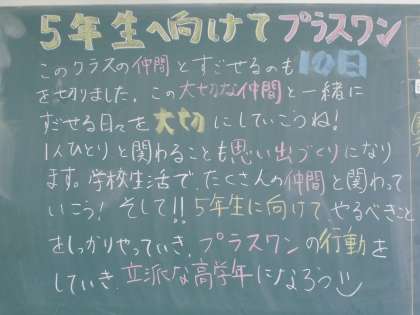 5年生へ向けてプラスワン
このクラスの仲間とすごせるのも10日
を切りました。この大切な仲間と一緒に
すごせる日々を大切にしていこうね!
1人ひとりと関わることも思い出づくりになり
ます。学校生活で、たくさんの仲間と関わって
いこう!そして!!5年生に向けて、やるべきこと
をしっかりやっていき、プラスワンの行動を
していき、立派な高学年になろう